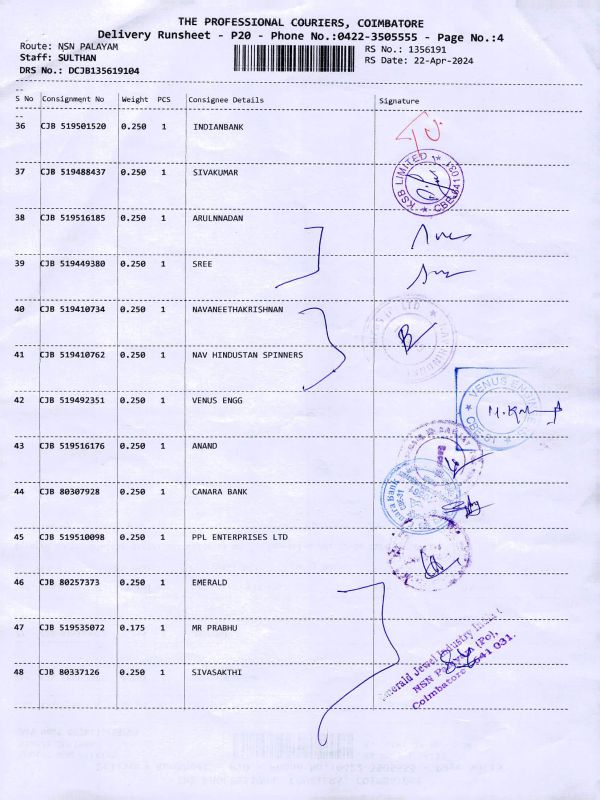 THE PROFESSIONAL COURIERS, COIMBATORE
Delivery Runsheet - P20 - Phone No.:0422-3505555 - Page No.:4
Route: NSN PALAYAM RS No.: 1356191
Staff: SULTHAN RS Date: 22-Apr-2024
DRS No.: DCJB135619104
S No Consignment No Weight PCS Consignee Details Signature
36 CJB 519501520 0.250 1 INDIANBANK
37 CJB 519488437 0.250 1 SIVAKUMAR
KSB LIMITED
CBE-641031
38 CJB 519516185 0.250 1 ARULNNADAN
39 CJB 519449380 0.250 1 SREE
40 CJB 519410734 0.250 1 NAVANEETHAKRISHNAN
41 CJB 519410762 0.250 1 NAV HINDUSTAN SPINNERS
42 CJB 519492351 0.250 1 VENUS ENGG
VENUS
CBE-31
43 CJB 519516176 0.250 1 ANAND
44 CJB 80307928 0.250 1 CANARA BANK
Bank
45 CJB 519510098 0.250 1 PPL ENTERPRISES LTD
46 CJB 80257373 0.250 1 EMERALD
47 CJB 519535072 0.175 1 MR PRABHU
48 CJB 80337126 0.250 1 SIVASAKTHI
Jewel Industry
NSN (Po),
Coimbatore 641 031.